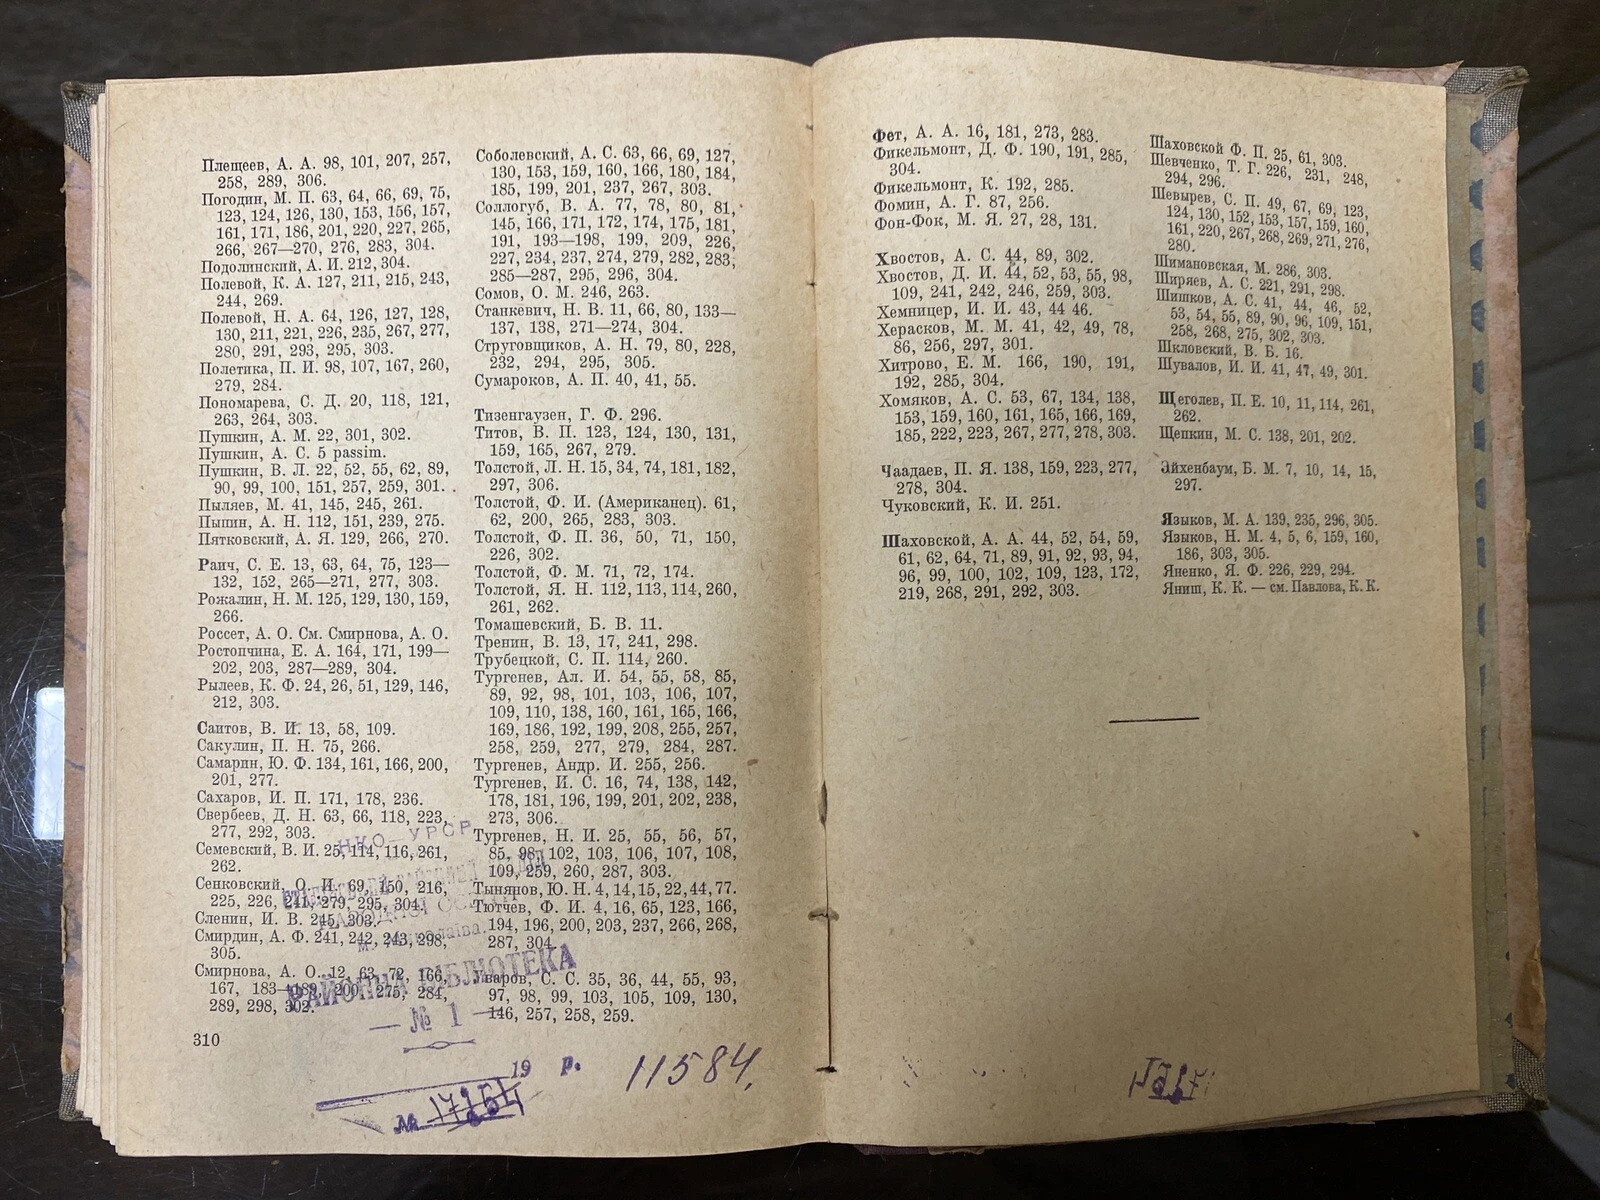 Плещеев, А. А. 98, 101, 207, 257,
258, 289, 306.
Погодин, М. П. 63, 64, 66, 69, 75,
123, 124, 126, 130, 153, 156, 157,
161, 171, 186, 201, 220, 227, 265,
266, 267—270, 276, 283, 304.
Подолинский, А. И. 212, 304.
Полевой, К. А. 127, 211, 215, 243,
244, 269.
Полевой, Н. А. 64, 126, 127, 128,
130, 211, 221, 226, 235, 267, 277,
280, 291, 293, 295, 303.
Полетика, П. И. 98, 107, 167, 260,
279, 284.
Пономарева, С. Д. 20, 118, 121,
263, 264, 303.
Пушкин, А. М. 22, 301, 302.
Пушкин, А. С. 5 passim.
Пушкин, В. Л. 22, 52, 55, 62, 89,
90, 99, 100, 151, 257, 259, 301.
Пыляев, М. 41, 145, 245, 261.
Пыпин, А. Н. 112, 151, 239, 275.
Пятковский, А. Я. 129, 266, 270.
Раич, С. Е. 13, 63, 64, 75, 123—
132, 152, 265—271, 277, 303.
Рожалин, Н. М. 125, 129, 130, 159,
266.
Россет, А. О. См. Смирнова, А. О.
Ростопчина, Е. А. 164, 171, 199—
202, 203, 287—289, 304.
Рылеев, К. Ф. 24, 26, 51, 129, 146,
212, 303.
Саитов, В. И. 13, 58, 109.
Сакулин, П. Н. 75, 266.
Самарин, Ю. Ф. 134, 161, 166, 200,
201, 277.
Сахаров, И. П. 171, 178, 236.
Свербеев, Д. Н. 63, 66, 118, 223,
277, 292, 303.
Семевский, В. И. 25, 114, 116, 261,
262.
Сенковский, О. И. 69, 150, 216,
225, 226, 241, 279, 295, 304.
Сленин, И. В. 245, 303.
Смирдин, А. Ф. 241, 242, 243, 298,
305.
Смирнова, А. О. 12, 63, 72, 166,
167, 183—189, 200, 275, 284,
289, 298, 302.
310
Соболевский, А. С. 63, 66, 69, 127,
130, 153, 159, 160, 166, 180, 184,
185, 199, 201, 237, 267, 303.
Соллогуб, В. А. 77, 78, 80, 81,
145, 166, 171, 172, 174, 175, 181,
191, 193—198, 199, 209, 226,
227, 234, 237, 274, 279, 282, 283,
285—287, 295, 296, 304.
Сомов, О. М. 246, 263.
Станкевич, Н. В. 11, 66, 80, 133—
137, 138, 271—274, 304.
Струговщиков, А. Н. 79, 80, 228,
232, 294, 295, 305.
Сумароков, А. П. 40, 41, 55.
Тизенгаузен, Г. Ф. 296.
Титов, В. П. 123, 124, 130, 131,
159, 165, 267, 279.
Толстой, Л. Н. 15, 34, 74, 181, 182,
297, 306.
Толстой, Ф. И. (Американец). 61,
62, 200, 265, 283, 303.
Толстой, Ф. П. 36, 50, 71, 150,
226, 302.
Толстой, Ф. М. 71, 72, 174.
Толстой, Я. Н. 112, 113, 114, 260,
261, 262.
Томашевский, Б. В. 11.
Тренин, В. 13, 17, 241, 298.
Трубецкой, С. П. 114, 260.
Тургенев, Ал. И. 54, 55, 58, 85,
89, 92, 98, 101, 103, 106, 107,
109, 110, 138, 160, 161, 165, 166,
169, 186, 192, 199, 208, 255, 257,
258, 259, 277, 279, 284, 287.
Тургенев, Андр. И. 255, 256.
Тургенев, И. С. 16, 74, 138, 142,
178, 181, 196, 199, 201, 202, 238,
273, 306.
Тургенев, Н. И. 25, 55, 56, 57,
85, 98, 102, 103, 106, 107, 108,
109, 259, 260, 287, 303.
Тынянов, Ю. Н. 4, 14, 15, 22, 44, 77.
Тютчев, Ф. И. 4, 16, 65, 123, 166,
194, 196, 200, 203, 237, 266, 268,
287, 304.
Уваров, С. С. 35, 36, 44, 55, 93,
97, 98, 99, 103, 105, 109, 130,
146, 257, 258, 259.
НКО—УРСР
РАЙОННА БІБЛІОТЕКА
— № 1 —
19 р.
№
11584.
Фет, А. А. 16, 181, 273, 283.
Фикельмонт, Д. Ф. 190, 191, 285,
304.
Фикельмонт, К. 192, 285.
Фомин, А. Г. 87, 256.
Фон-Фок, М. Я. 27, 28, 131.
Хвостов, А. С. 44, 89, 302.
Хвостов, Д. И. 44, 52, 53, 55, 98,
109, 241, 242, 246, 259, 303.
Хемницер, И. И. 43, 44 46.
Херасков, М. М. 41, 42, 49, 78,
86, 256, 297, 301.
Хитрово, Е. М. 166, 190, 191,
192, 285, 304.
Хомяков, А. С. 53, 67, 134, 138,
153, 159, 160, 161, 165, 166, 169,
185, 222, 223, 267, 277, 278, 303.
Чаадаев, П. Я. 138, 159, 223, 277,
278, 304.
Чуковский, К. И. 251.
Шаховской, А. А. 44, 52, 54, 59,
61, 62, 64, 71, 89, 91, 92, 93, 94,
96, 99, 100, 102, 109, 123, 172,
219, 268, 291, 292, 303.
Шаховской Ф. П. 25, 61, 303.
Шевченко, Т. Г. 226, 231, 248,
294, 296.
Шевырев, С. П. 49, 67, 69, 123,
124, 130, 152, 153, 157, 159, 160,
161, 220, 267, 268, 269, 271, 276,
280.
Шимановская, М. 286, 303.
Ширяев, А. С. 221, 291, 298.
Шишков, А. С. 41, 44, 46, 52,
53, 54, 55, 89, 90, 96, 109, 151,
258, 268, 275, 302, 303.
Шкловский, В. Б. 16.
Шувалов, И. И. 41, 47, 49, 301.
Щеголев, П. Е. 10, 11, 114, 261,
262.
Щепкин, М. С. 138, 201, 202.
Эйхенбаум, Б. М. 7, 10, 14, 15,
297.
Языков, М. А. 139, 235, 296, 305.
Языков, Н. М. 4, 5, 6, 159, 160,
186, 303, 305.
Яненко, Я. Ф. 226, 229, 294.
Яниш, К. К. — см. Павлова, К. К.